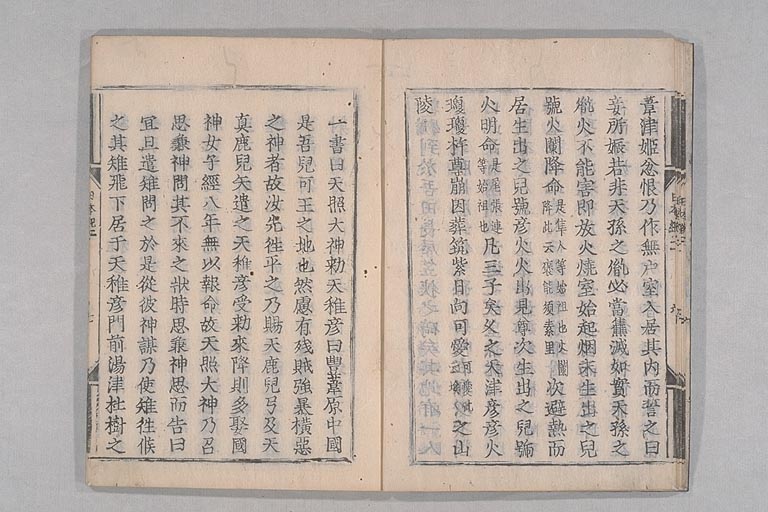 葦津姫忿恨乃作無戸室入居其内而誓之曰
妾所娠若非天孫之胤必當𤓪滅如實天孫之
胤火不能害即放火燒室始起烟末生出之兒
號火闌降命是隼人等始祖也火闌降此云褒能須素里次避熱而
居生出之兒號彦火火出見尊次生出之兒號
火明命是尾張連等始祖也凡三子矣久之天津彦彦火
瓊瓊杵尊崩因葬筑紫日向可愛此云埃之山
陵
一書曰天照大神勅天稚彦曰豐葦原中國
是吾兒可王之地也然慮有殘賊強暴橫惡
之神者故汝先徃平之乃賜天鹿兒弓及天
真鹿兒矢遣之天稚彦受勅來降則多娶國
神女子經八年無以報命故天照大神乃召
思兼神問其不來之狀時思兼神思而告曰
宜且遣雉問之於是從彼神謀乃使雉徃候
之其雉飛下居于天稚彦門前湯津杜樹之
日本紀二